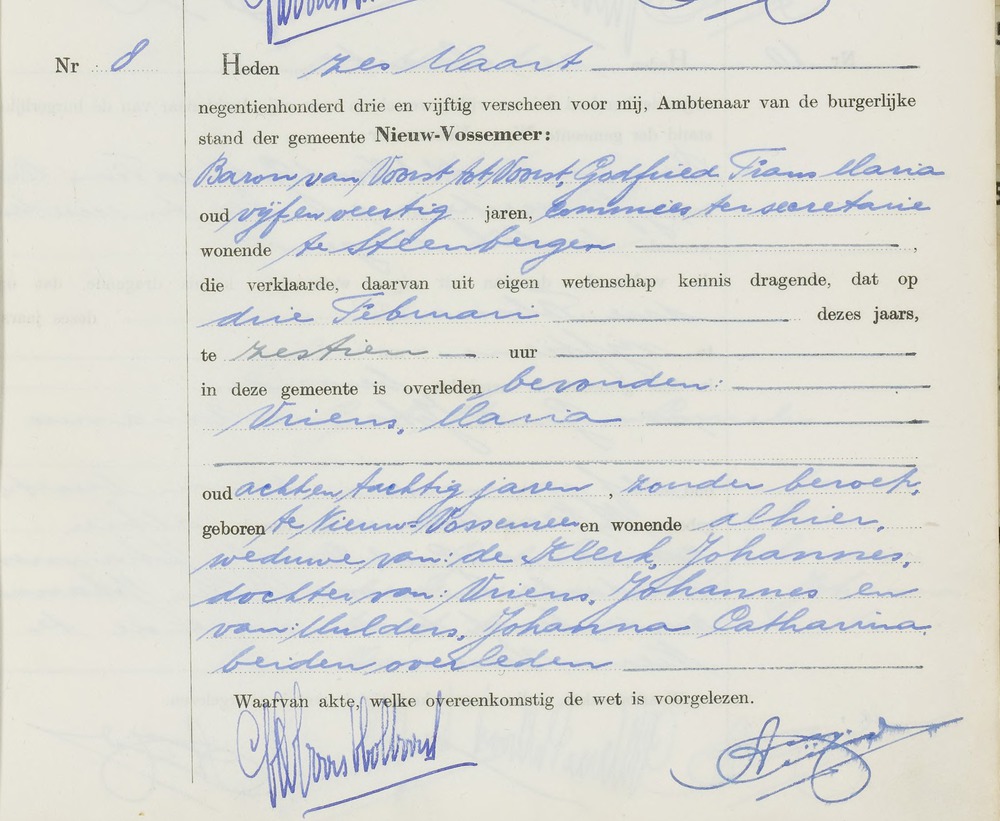 Nr 8
Heden zes Maart
negentienhonderd drie en vijftig verscheen voor mij, Ambtenaar van de burgerlijke
stand der gemeente Nieuw-Vossemeer:
Baron van Voorst tot Voorst, Godfried Frans Maria
oud vijfenveertig jaren, commies ter secretarie
wonende te Steenbergen ,
die verklaarde, daarvan uit eigen wetenschap kennis dragende, dat op
drie Februari dezes jaars,
te zestien uur
in deze gemeente is overleden bevonden:
Vriens, Maria
oud achtentachtig jaren , zonder beroep,
geboren te Nieuw-Vossemeer en wonende alhier,
weduwe van: de Klerk, Johannes,
dochter van: Vriens, Johannes en
van: Mulders, Johanna Catharina
beiden overleden
Waarvan akte, welke overeenkomstig de wet is voorgelezen.